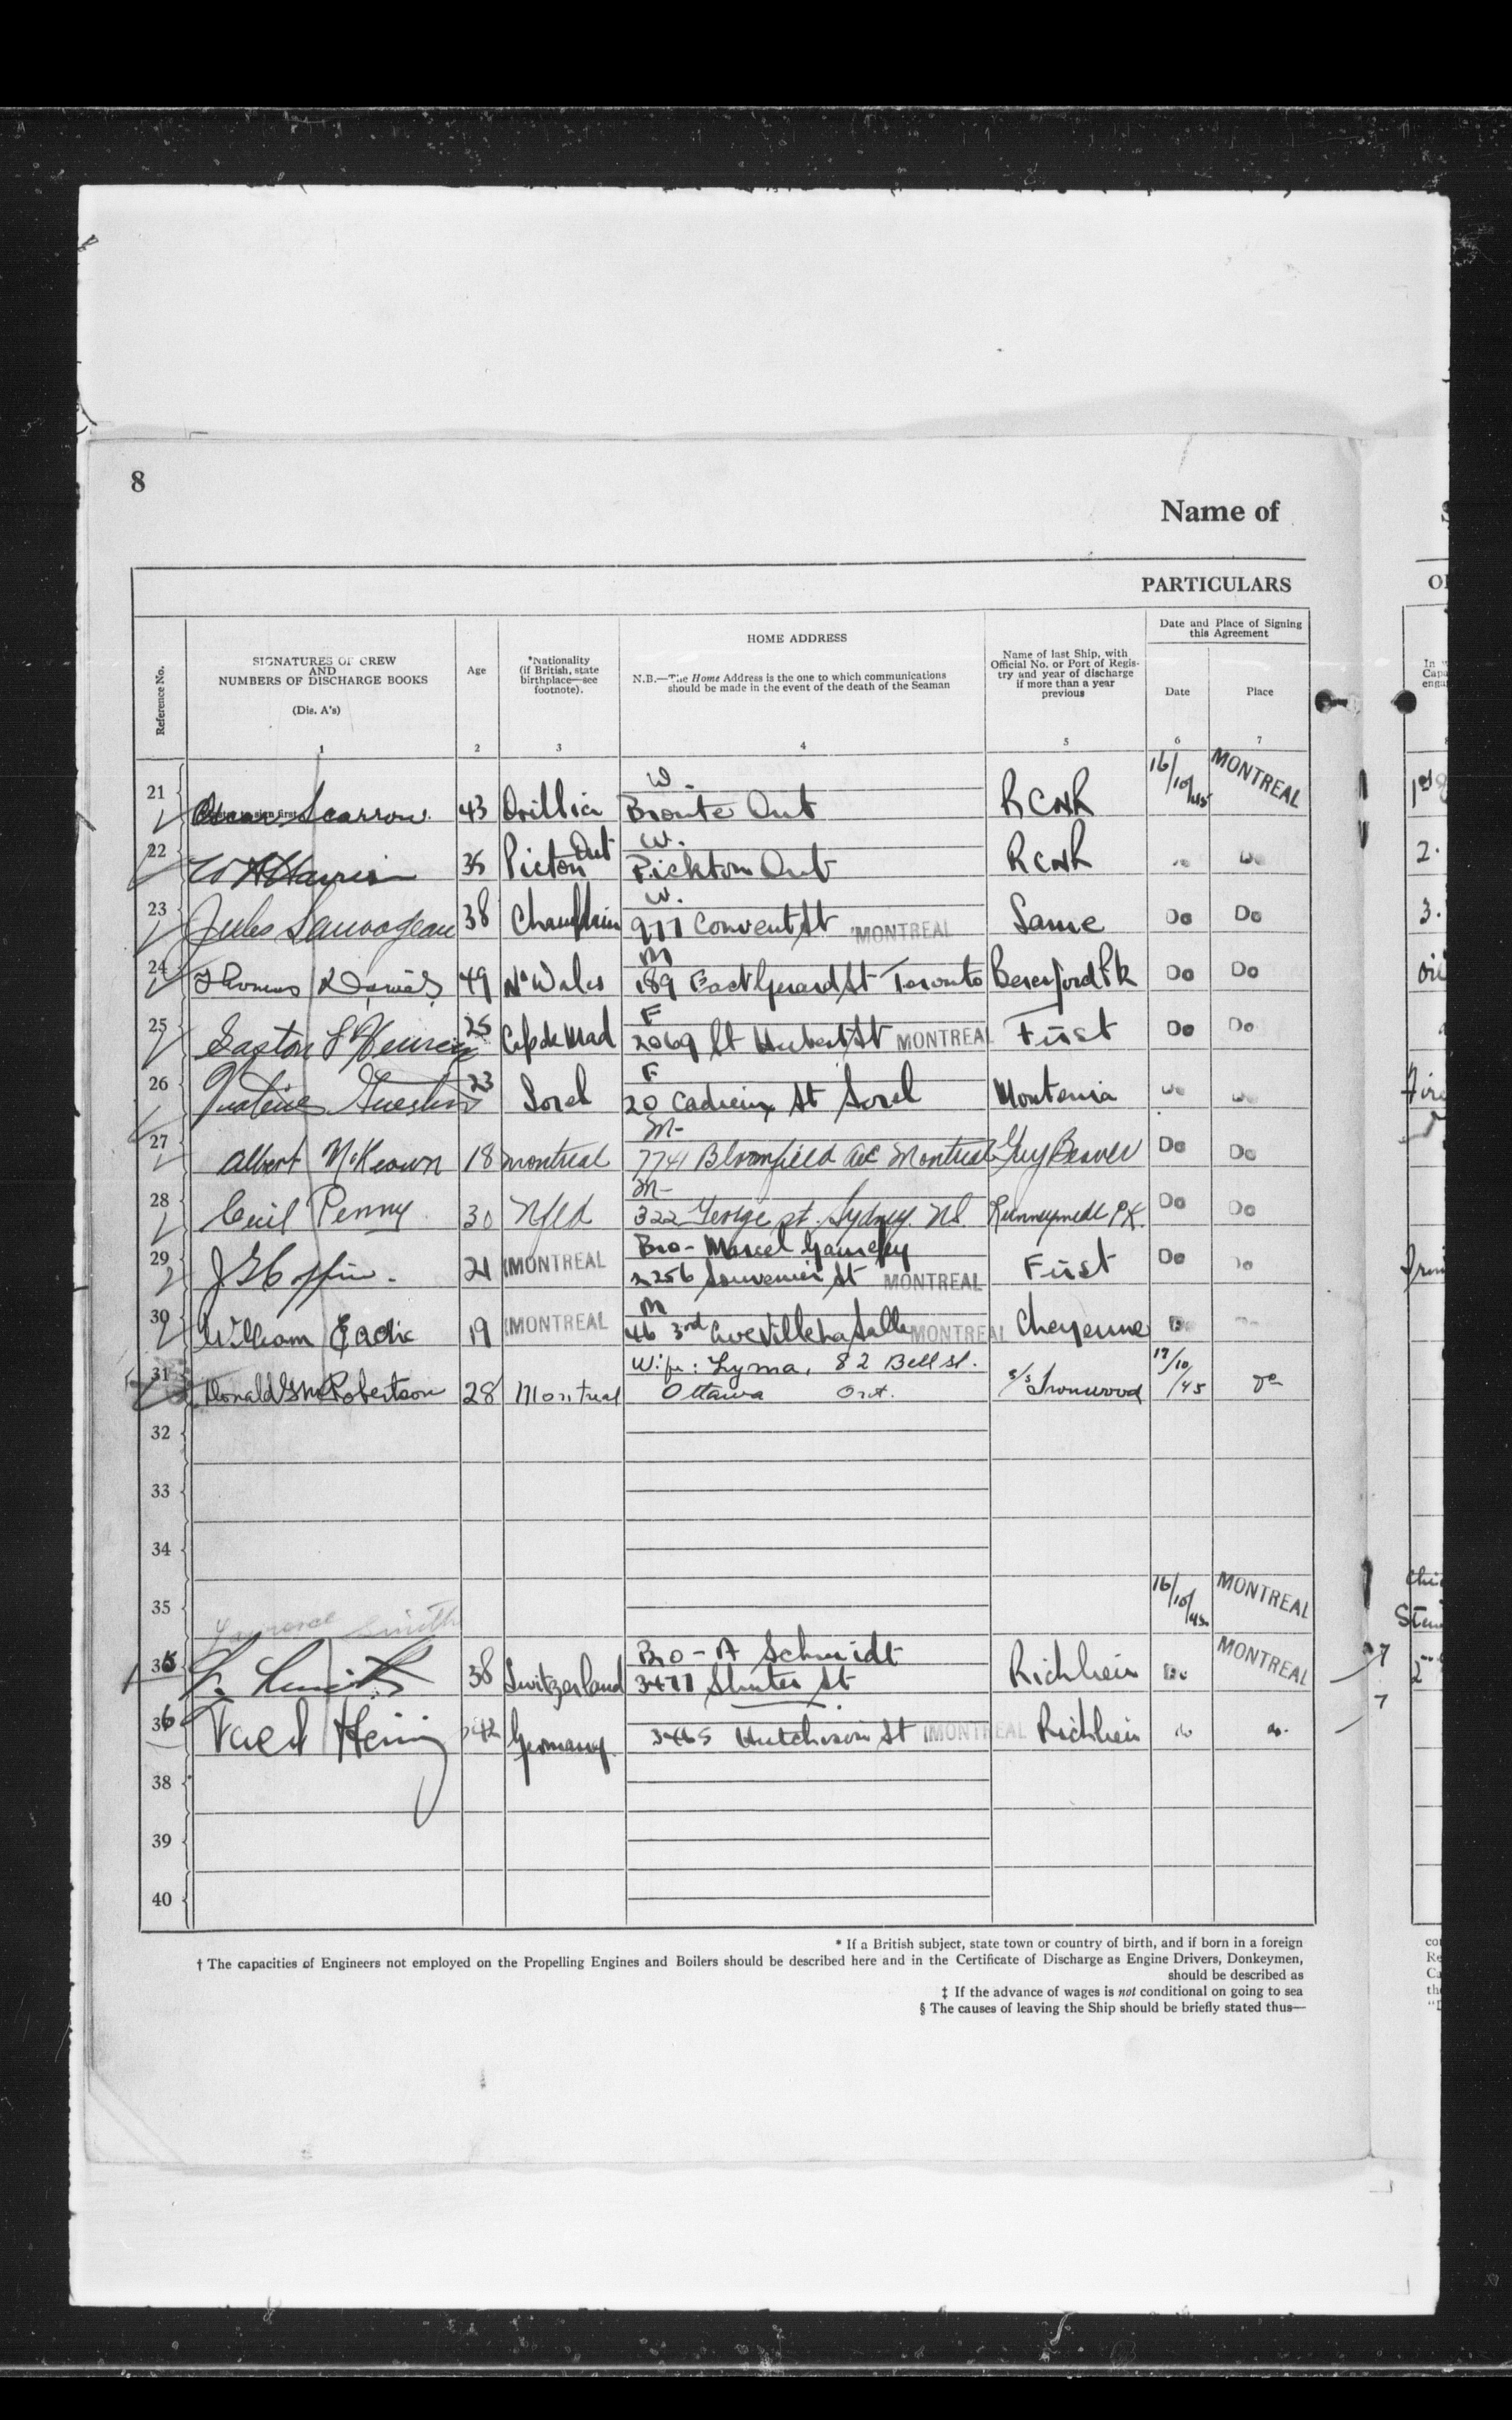 8
Name of
PARTICULARS
Reference No.
SIGNATURES OF CREW
AND
NUMBERS OF DISCHARGE BOOKS
(Dis. A's)
1
Age
2
*Nationality
(if British, state
birthplace—see
footnote).
3
HOME ADDRESS
N.B.—The Home Address is the one to which communications
should be made in the event of the death of the Seaman
4
Name of last Ship, with
Official No. or Port of Regis-
try and year of discharge
if more than a year
previous
5
Date and Place of Signing
this Agreement
Date
6
Place
7
W.
21 Oscar Scarrow. 43 Orillia Bronte Ont RCNR 16/10/45 MONTREAL
W.
22 W Harris 35 Picton Ont Pickton Ont RCNR Do
W.
23 Jules Sauvageau 38 Champlain 977 Convent St MONTREAL Same Do Do
M
24 Thomas 49 N. Wales 189 East Gerard St Toronto Beresford Pk Do Do
F
25 Gaston 25 Cap de Mad 2069 St Hubert St MONTREAL First Do Do
F
26 23 Sorel 20 Cadieux St Sorel Do Do
M-
27 Albert McKeown 18 Montreal 7741 Bloomfield Ave Montreal Guy Beaver Do Do
M-
28 Cecil Penny 30 Nfld 322 George st. Sydney. NS Runnymede PK. Do Do
Bro- Marcel
29 J G Coffin. 21 MONTREAL 2256 Souvenir St MONTREAL First Do Do
M
30 William Eadie 19 MONTREAL 46 3rd Ave Ville La Salle MONTREAL Cheyenne Do
Wife: Lyma, 82 Bell St.
31 Donald G McRobertson 28 Montreal Ottawa Ont. S/S Ironwood 17/10/45 do
32
33
34
35 16/10/45 MONTREAL
Smith
Bro - A Schmidt
35 38 Switzerland 3477 Shuter St Do MONTREAL
36 42 Germany. 3465 Hutchison St MONTREAL do do
38
39
40
* If a British subject, state town or country of birth, and if born in a foreign
† The capacities of Engineers not employed on the Propelling Engines and Boilers should be described here and in the Certificate of Discharge as Engine Drivers, Donkeymen,
should be described as
‡ If the advance of wages is not conditional on going to sea
§ The causes of leaving the Ship should be briefly stated thus—